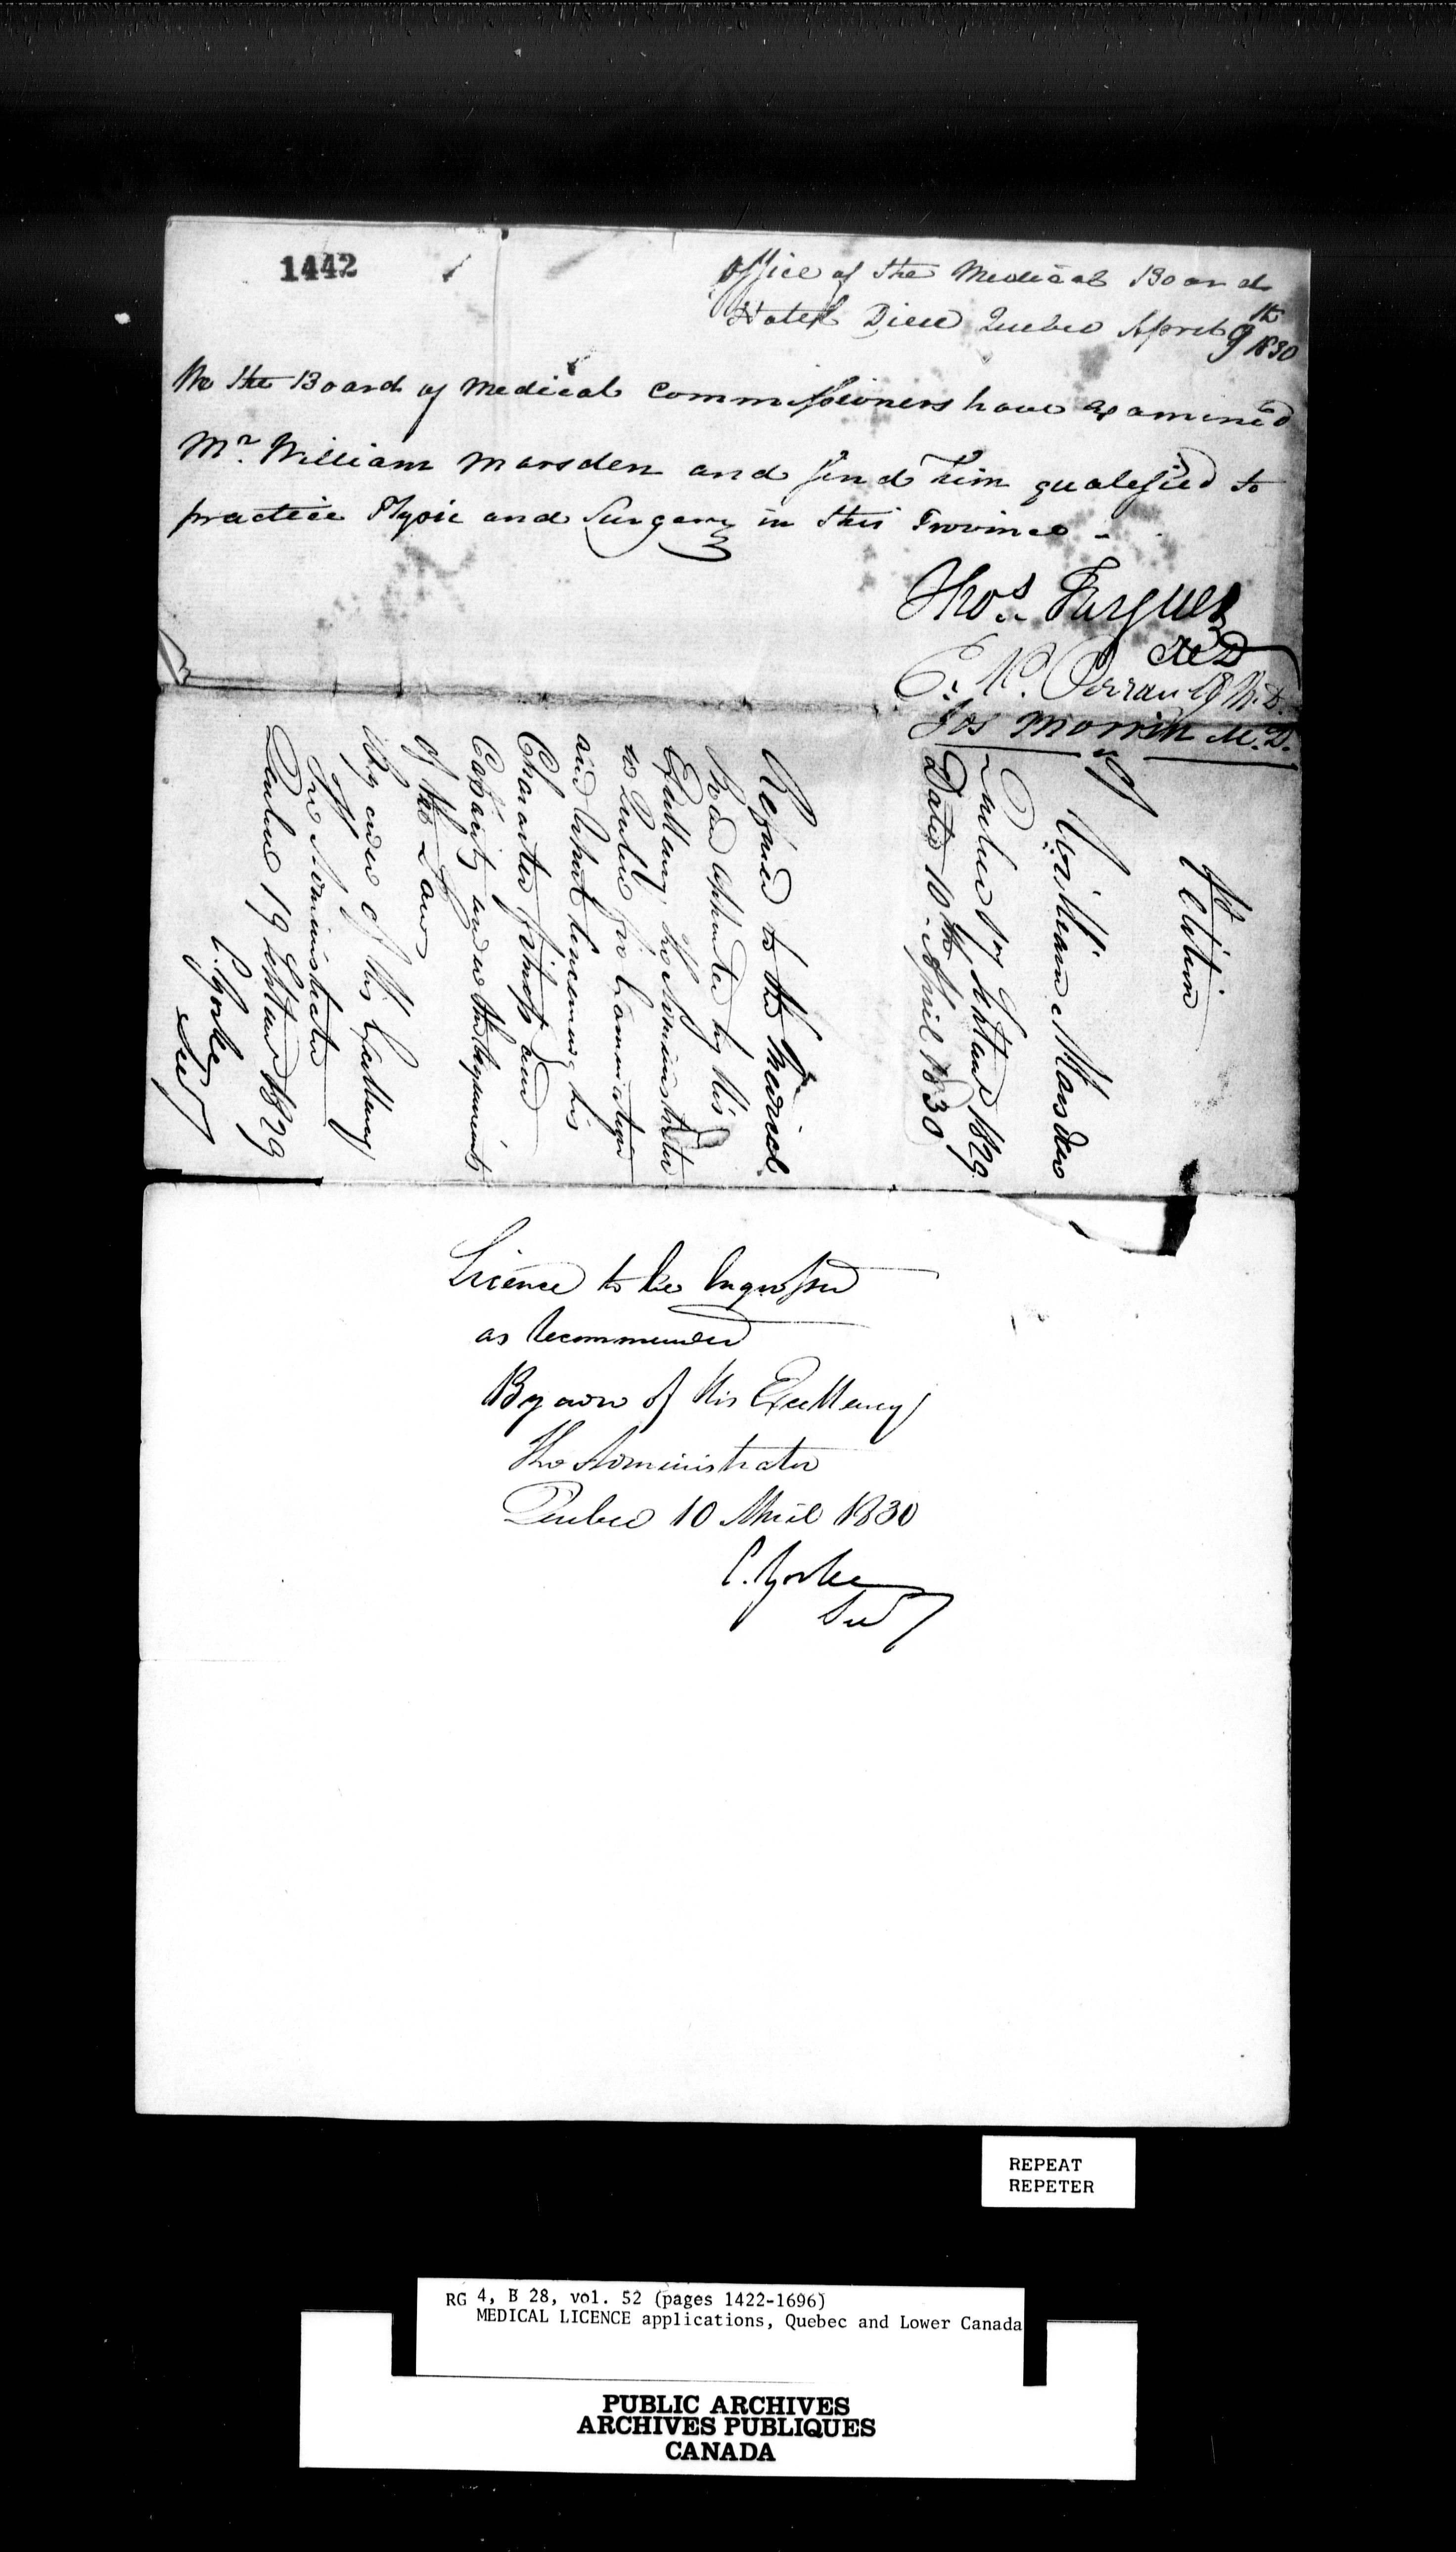 1442
Office of the Medical Board
Hotel Dieu Quebec April 9th 1830
We the Board of Medical Commissioners have examined
Mr. William Marsden and find him qualified to
practice Physic and Surgery in this Province -
Thos. Fargues
M D
C. N. Perrault M. D.
Jos Morrin M. D.
Petition
of
William Marsden
Quebec 17 1829
Dated 10th April 1830
Referred to the Medical
Board appointed by His
Excellency the Administrator
at Quebec for Examination
and Report concerning his
Character fitness and
Capacity under the requirements
of the Law
By order of His Excellency
The Administrator
Quebec 19 1829
C. Yorke
Secy
Licence to be Engrossed
as recommended
By order of His Excellency
The Administrator
Quebec 10 April 1830
C. Yorke
Secy
REPEAT
REPETER
RG 4, B 28, vol. 52 (pages 1422-1696)
MEDICAL LICENCE applications, Quebec and Lower Canada
PUBLIC ARCHIVES
ARCHIVES PUBLIQUES
CANADA